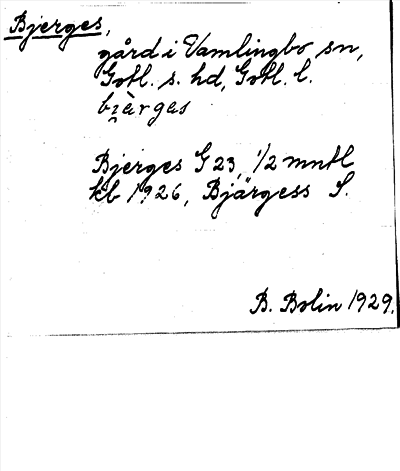 Bjerges,
gård i Vamlingbo sn,
Gotl. s. hd, Gotl. l.
bi̯èrges
Bjerges G 23, 1/2 mntl
kb 1926, Bjärgess S.
B. Bolin 1929.